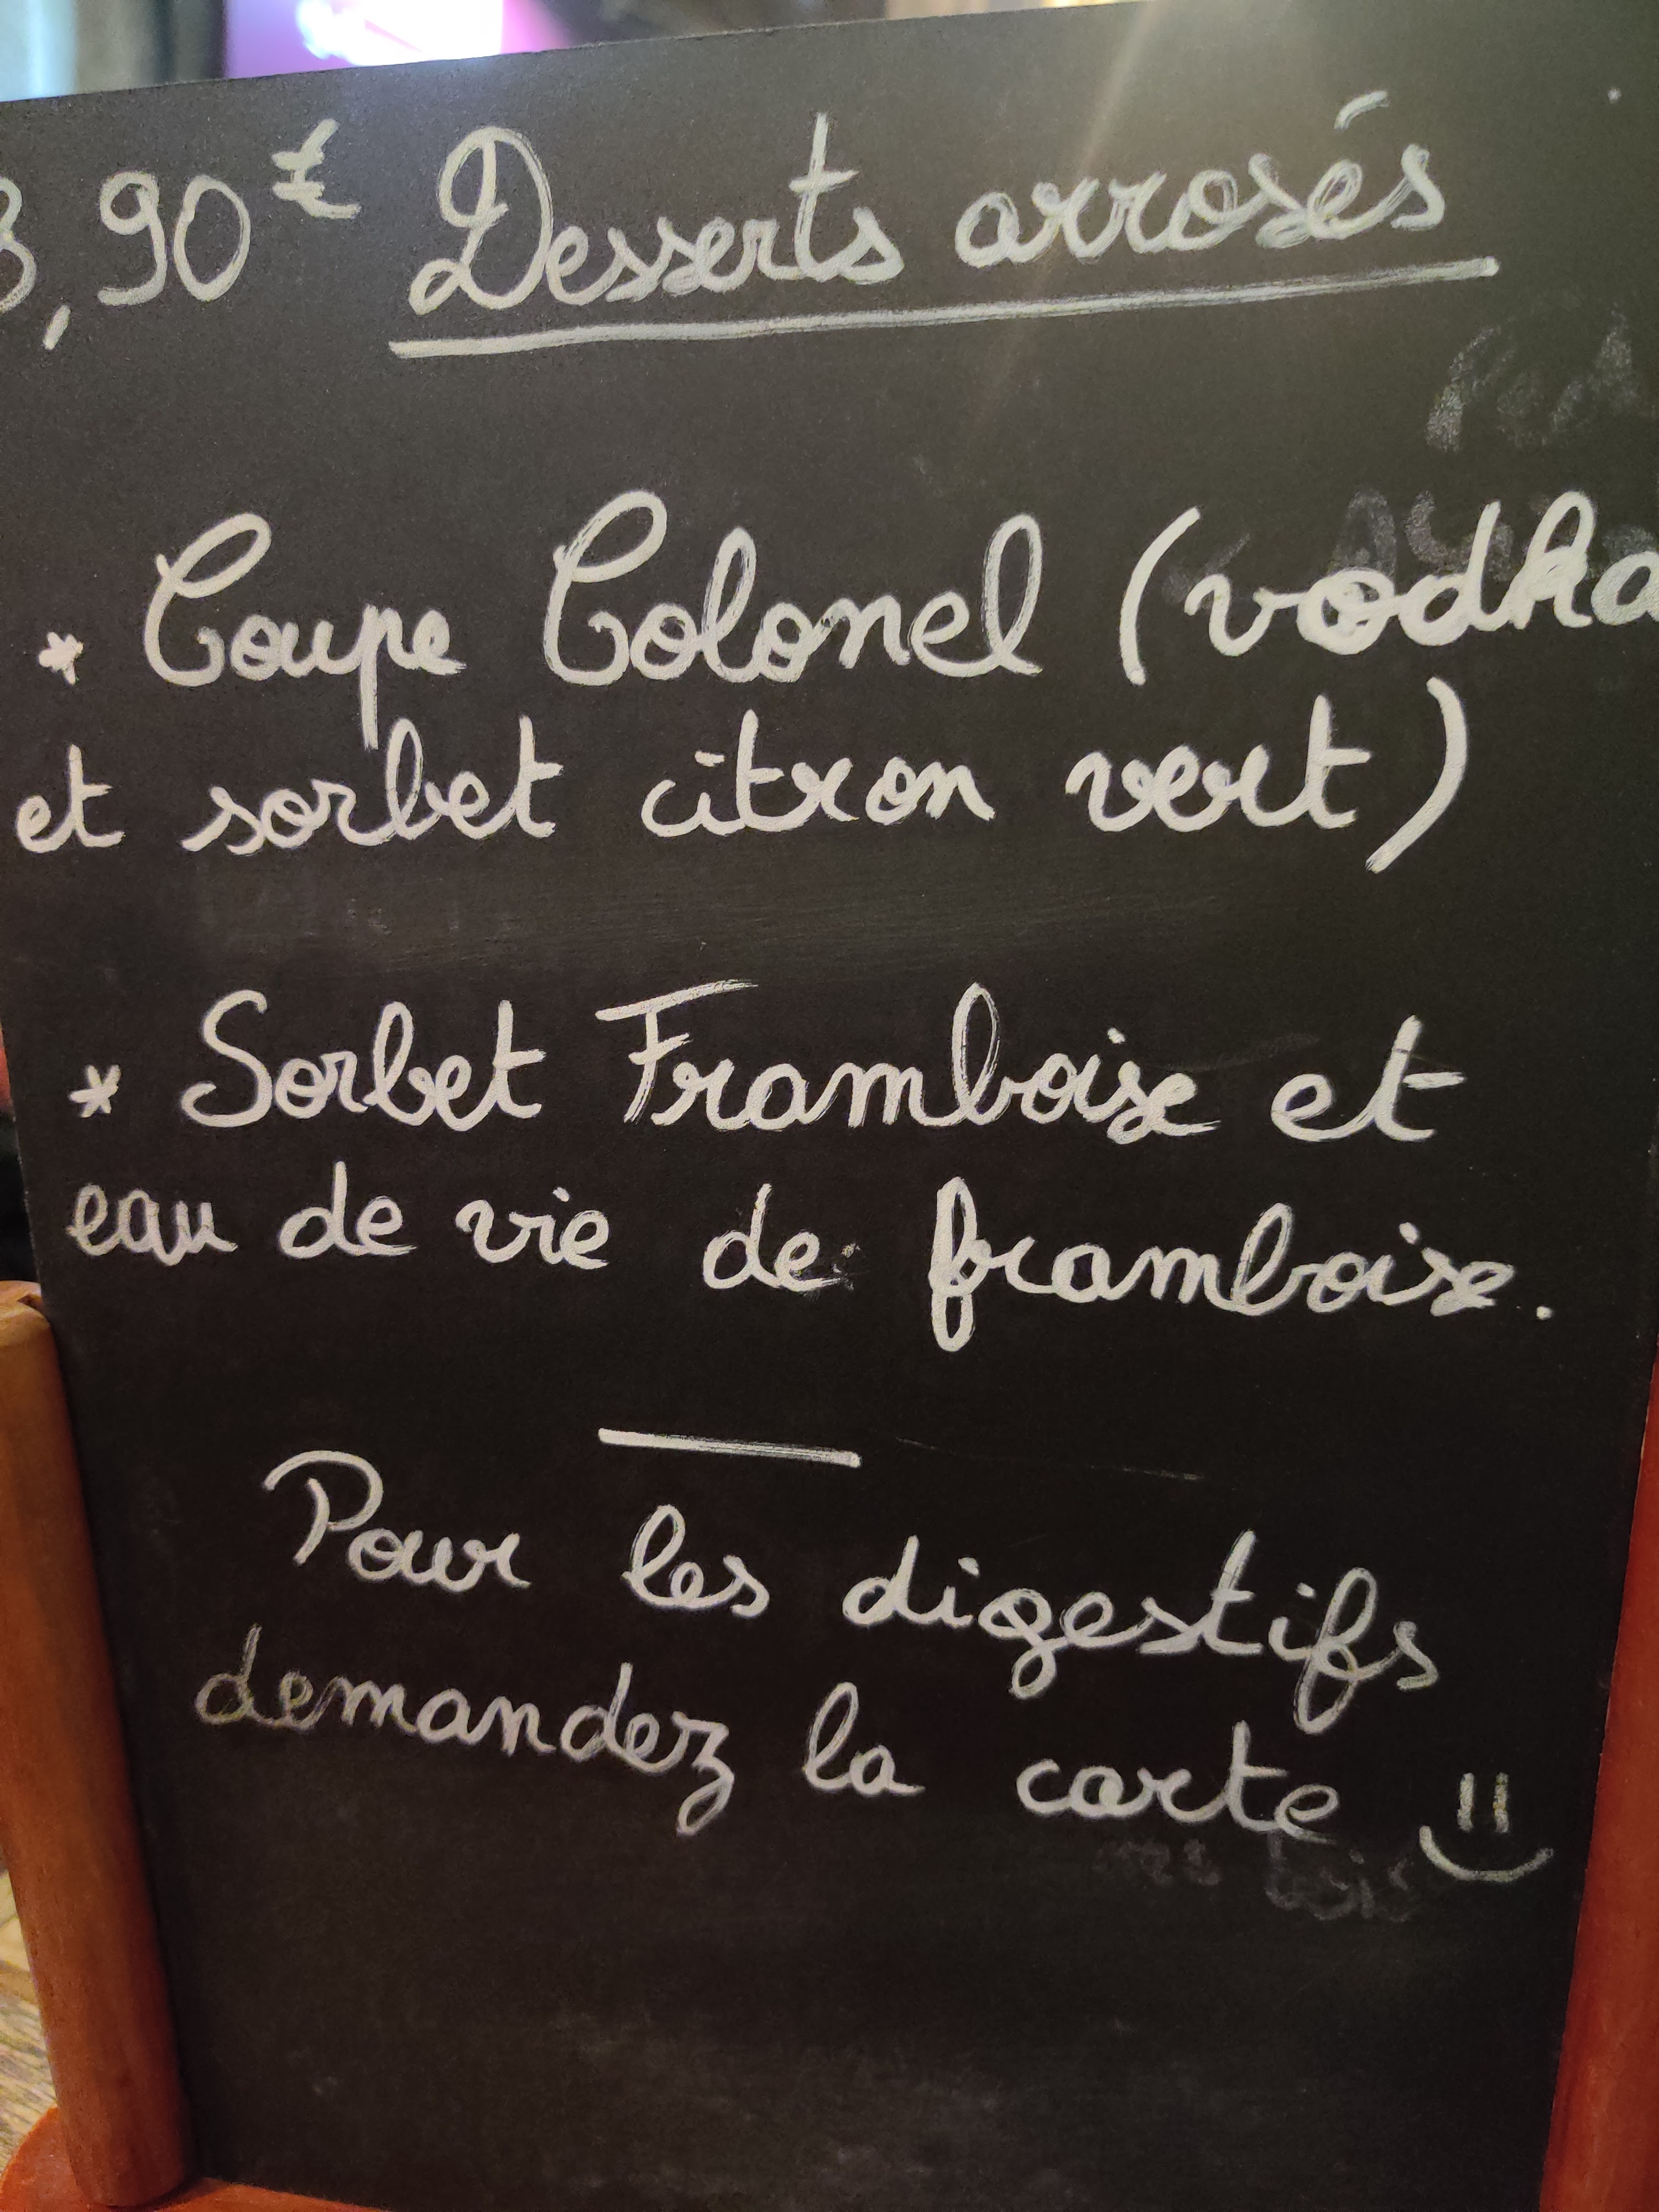 ,90€ Desserts arrosés
* Coupe Colonel (vodka
et sorbet citron vert)
* Sorbet Framboise et
eau de vie de framboise.
Pour les digestifs
demandez la carte